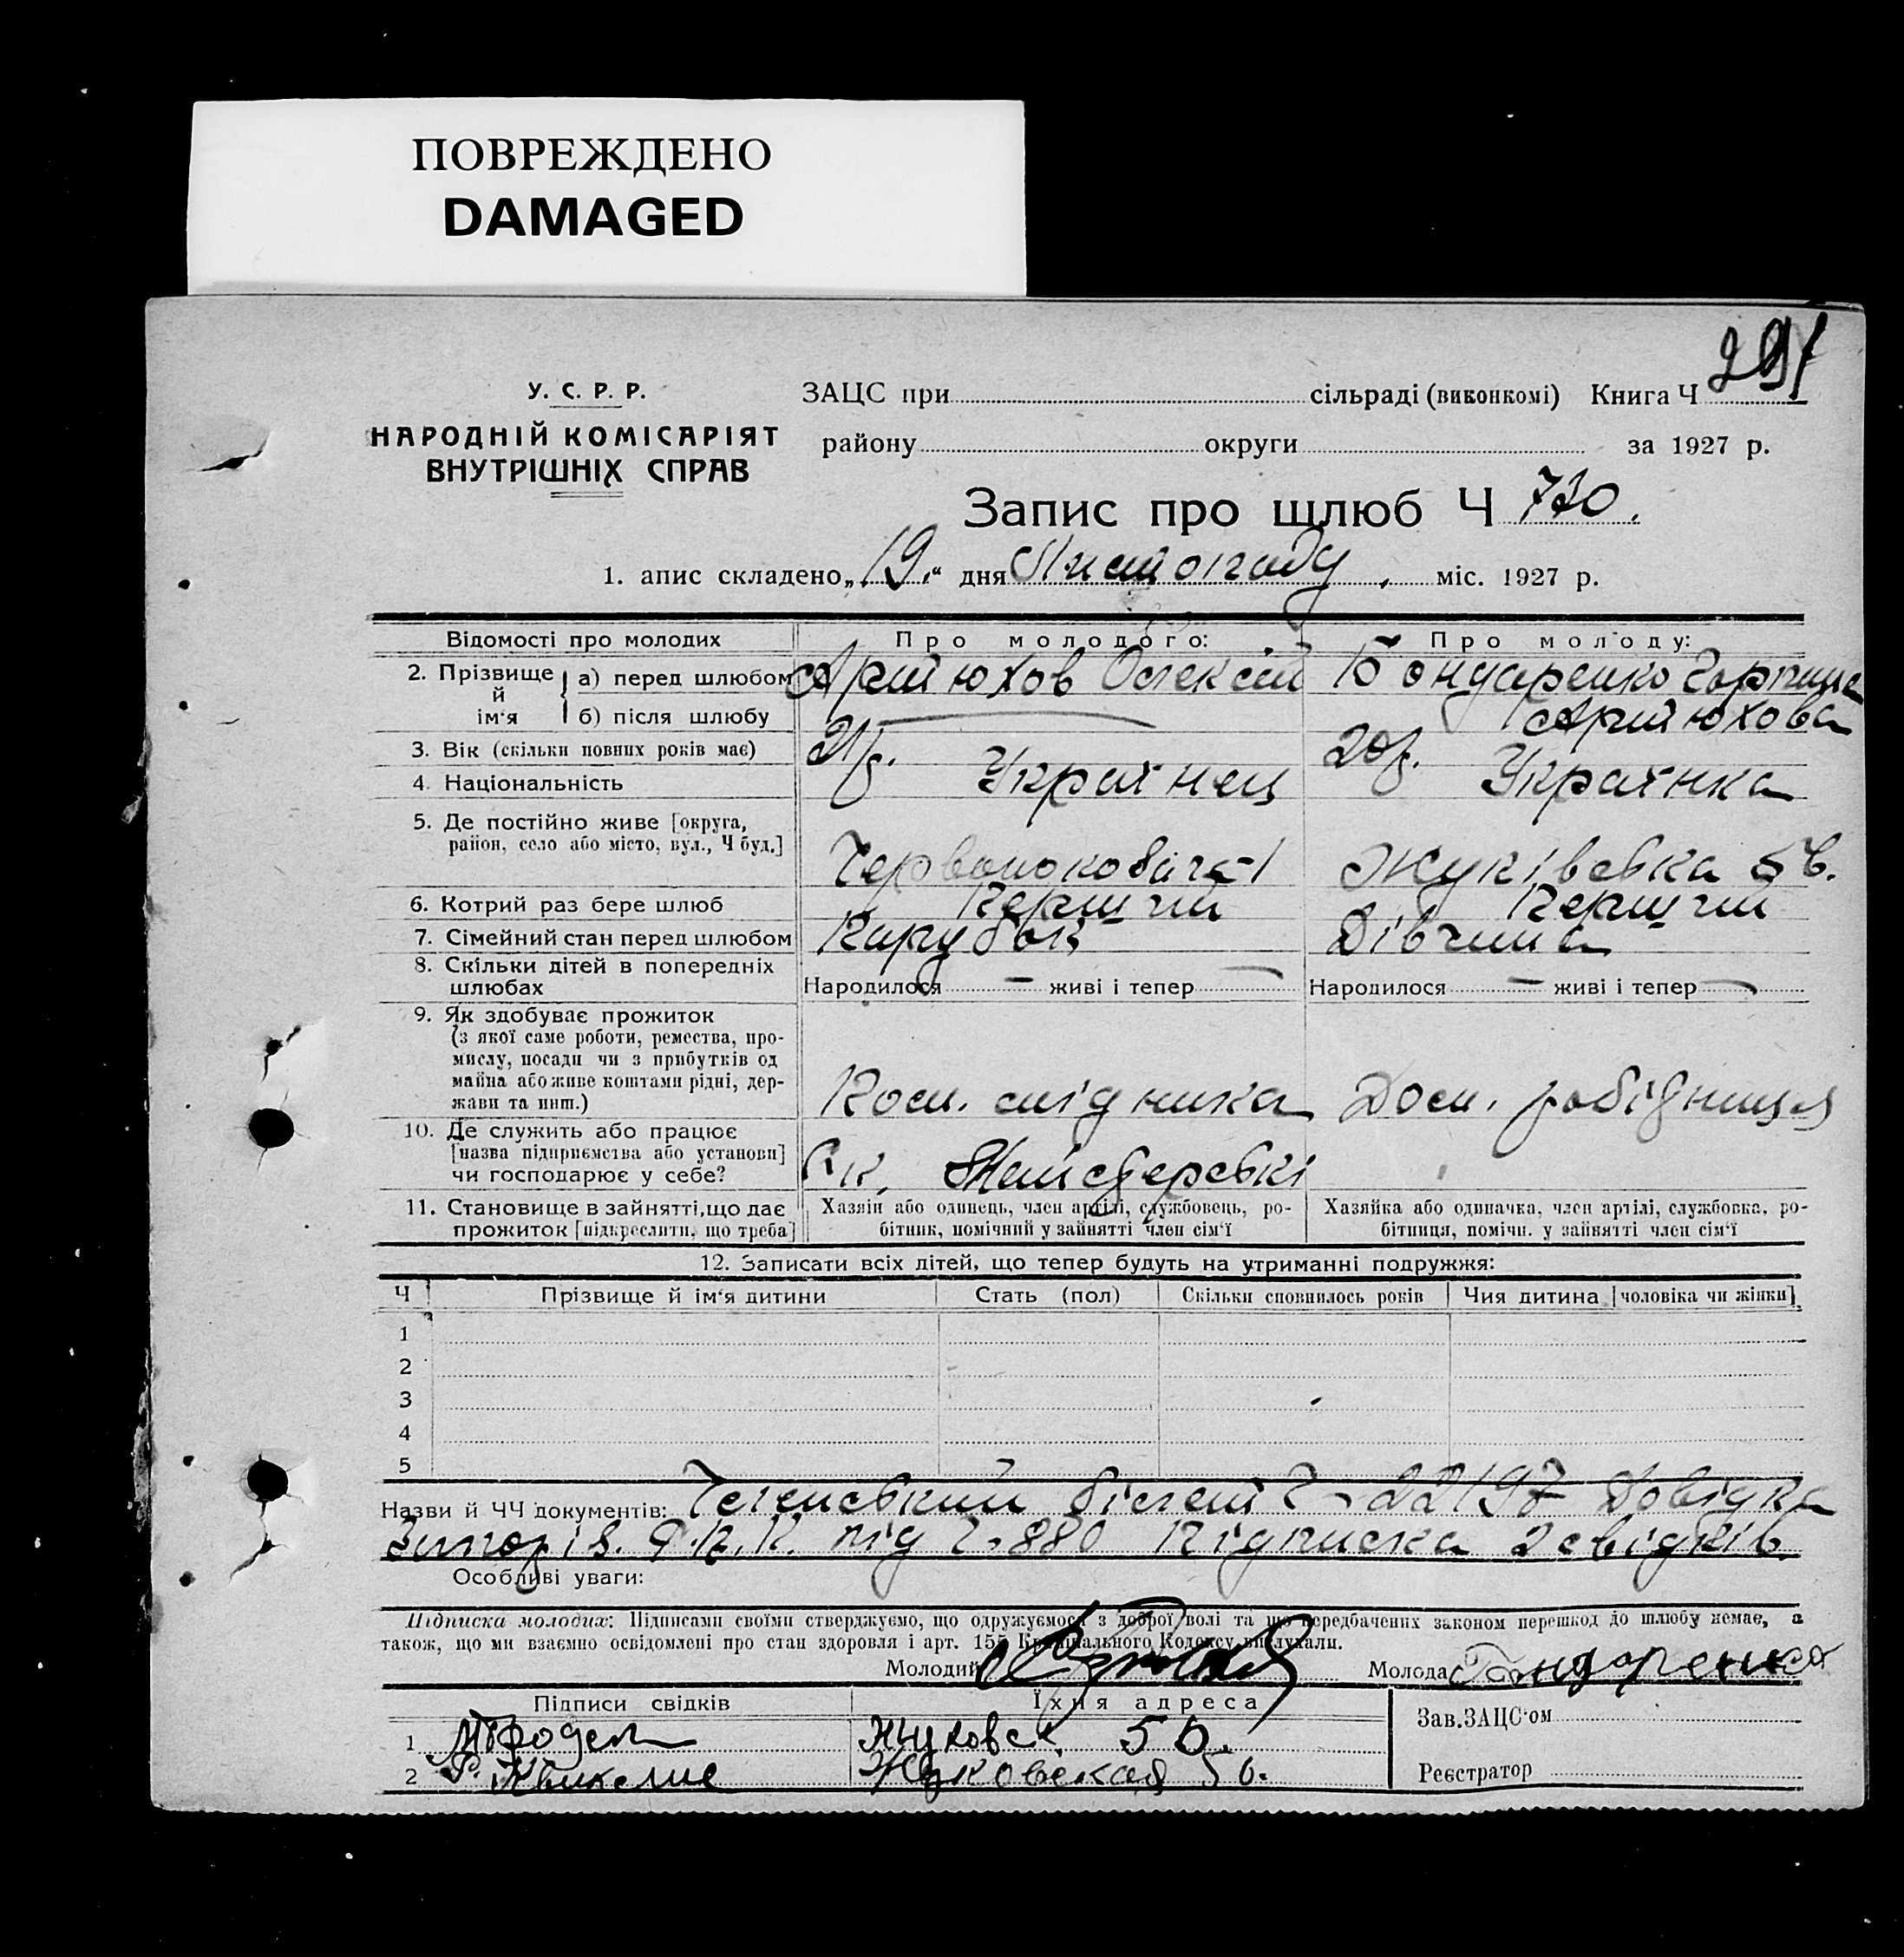 ПОВРЕЖДЕНО
DAMAGED
291
У. С. Р. Р.
НАРОДНІЙ КОМІСАРІЯТ
ВНУТРІШНІХ СПРАВ
ЗАЦС при сільраді (виконкомі) Книга Ч
району округи за 1927 р.
Запис про шлюб Ч 730.
1. апис складено „19.“ дня Листопаду міс. 1927 р.
Відомості про молодих Про молодого: Про молоду:
2. Прізвище й ім‘я а) перед шлюбом Артюхов Олексій Бондаренко Горпина
б) після шлюбу Артюхова
3. Вік (скільки повних років має) 21 р. 20 р.
4. Національність Українец Українка
5. Де постійно живе [округа,
район, село або місто, вул., Ч буд.] Жуківська
6. Котрий раз бере шлюб Перший Перший
7. Сімейний стан перед шлюбом Парубок Дівчина
8. Скільки дітей в попередніх
шлюбах Народилося — живі і тепер — Народилося — живі і тепер —
9. Як здобуває прожиток
(з якої саме роботи, ремества, про-
мислу, посади чи з прибутків од
майна або живе коштами рідні, дер-
жави та инш.) Дом. робідниця
10. Де служить або працює
[назва підприємства або установи]
чи господарює у себе?
11. Становище в зайнятті, що дає
прожиток [підкреслити, що треба]
Хазяїн або одинець, член артілі, службовець, ро-
бітник, помічний у зайнятті член сім‘ї
Хазяйка або одиначка, член артілі, службовка, ро-
бітниця, помічн. у зайнятті член сім‘ї
12. Записати всіх дітей, що тепер будуть на утриманні подружжя:
Ч Прізвище й ім‘я дитини Стать (пол) Скільки сповнилось років Чия дитина [чоловіка чи жінки]
1
2
3
4
5
Назви й ЧЧ документів: Членський білет Ч 22197 Довідка
під Ч. 880 Підписка 2 свідків.
Особливі уваги:
Підписка молодих: Підписами своїми стверджуємо, що одружуємося з доброї волі та що передбачених законом перешкод до шлюбу немає, а
також, що ми взаємно освідомлені про стан здоровля і арт. 155 Кримінального Кодексу вислухали.
Молодий Молода Бондаренко
Підписи свідків Їхня адреса
1 Жуковск. 56.
2 Жуковская 56.
Зав. ЗАЦС‘ом
Реєстратор